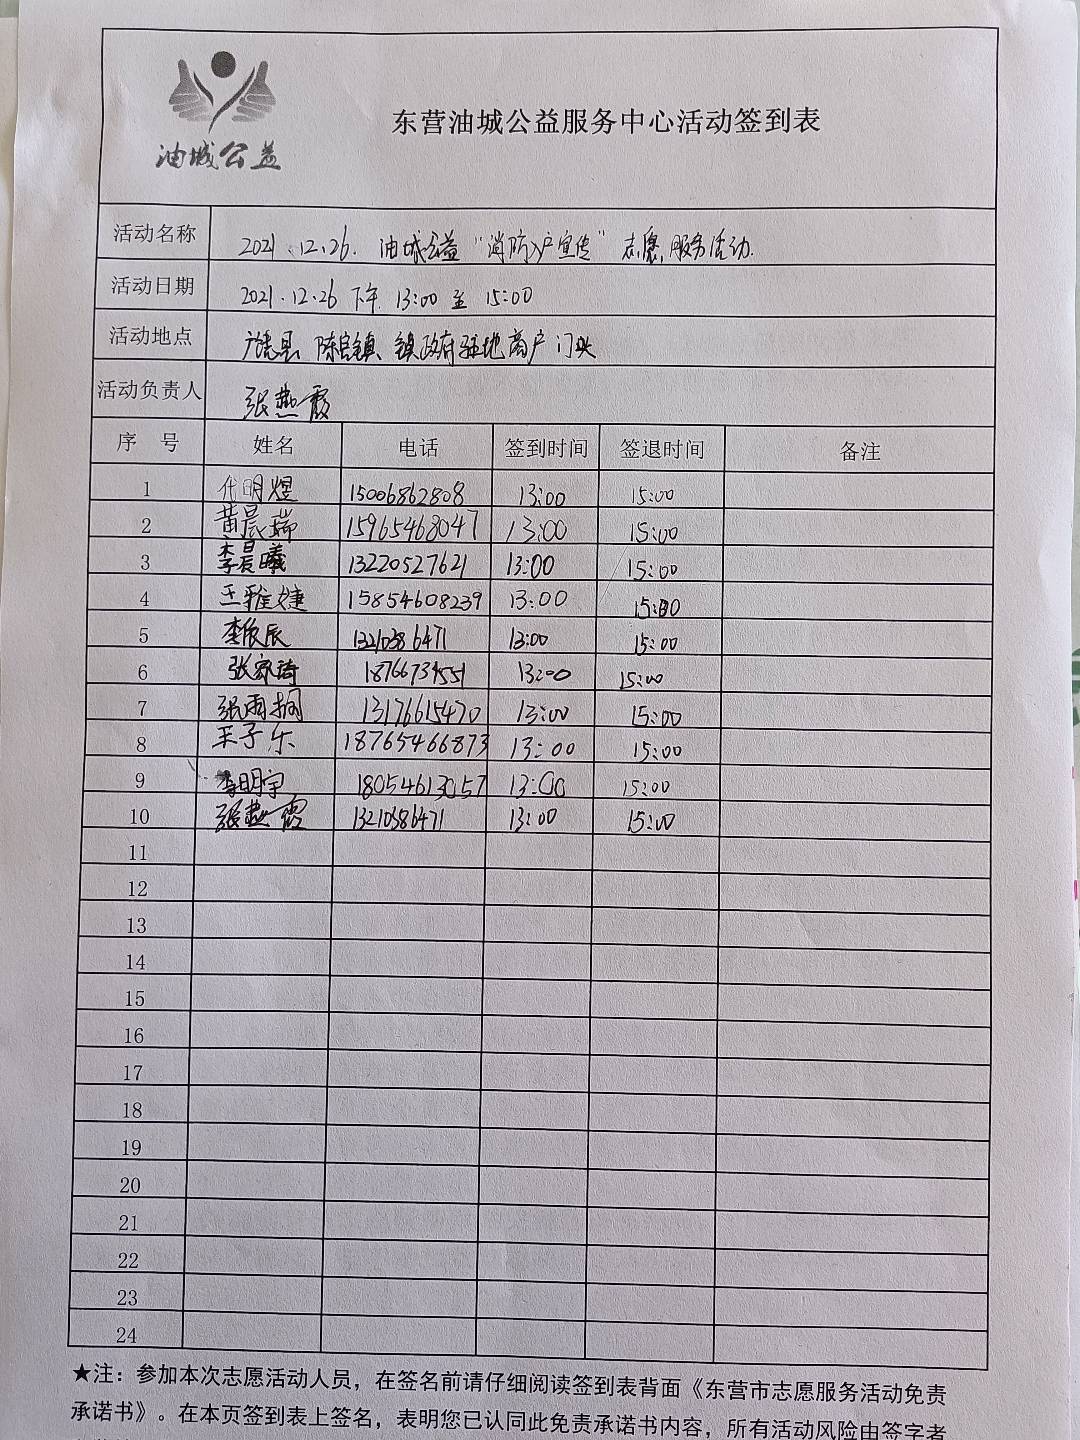 油城公益
东营油城公益服务中心活动签到表
活动名称 2021.12.26. 油城公益“消防入户宣传”志愿服务活动.
活动日期 2021.12.26 下午 13:00 至 15:00
活动地点 广饶县 陈官镇、镇政府驻地商户门头
活动负责人 张燕霞
序 号 姓名 电话 签到时间 签退时间 备注
1 代明煜 15006862808 13:00 15:00
2 黄晨瑞 15965468047 13:00 15:00
3 李晨曦 13220527621 13:00 15:00
4 王雅婕 15854608239 13:00 15:00
5 李欣辰 13210386471 13:00 15:00
6 张家琦 18766734551 13:00 15:00
7 张雨桐 13176615470 13:00 15:00
8 王子乐 18765466873 13:00 15:00
9 李明宇 18054613057 13:00 15:00
10 张燕霞 13210386471 13:00 15:00
11
12
13
14
15
16
17
18
19
20
21
22
23
24
★注：参加本次志愿活动人员，在签名前请仔细阅读签到表背面《东营市志愿服务活动免责
承诺书》。在本页签到表上签名，表明您已认同此免责承诺书内容，所有活动风险由签字者